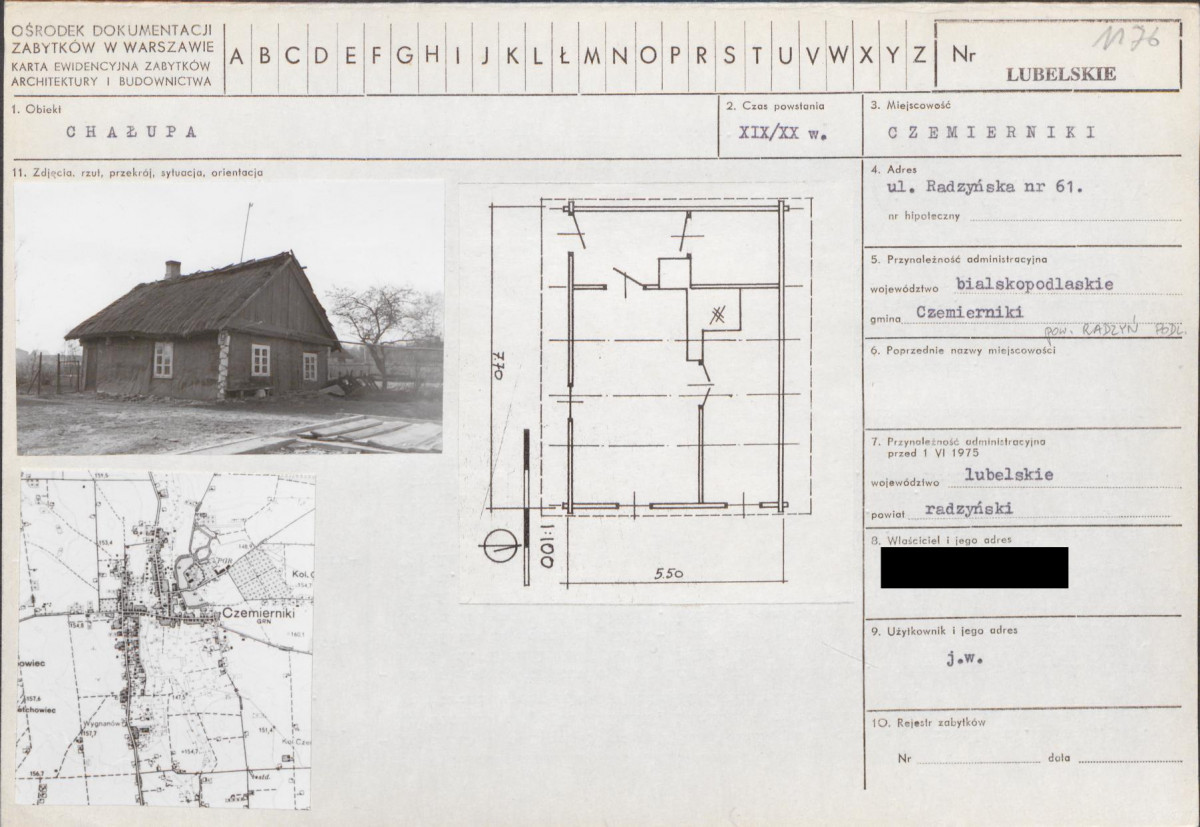 OŚRODEK DOKUMENTACJI
ZABYTKÓW W WARSZAWIE
KARTA EWIDENCYJNA ZABYTKÓW
ARCHITEKTURY I BUDOWNICTWA
A B C D E F G H I J K L Ł M N O P R S T U V W X Y Z
Nr
1176
LUBELSKIE
1. Obiekt
CHAŁUPA
2. Czas powstania
XIX/XX w.
3. Miejscowość
CZEMIERNIKI
11. Zdjęcia, rzut, przekrój, sytuacja, orientacja
7.70
1:100
5.50
Czemierniki
GRN
Kol.
Wygnanów
157,6
157,7
156,7
151,4
153,4
154,8
4. Adres
ul. Radzyńska nr 61.
nr hipoteczny
5. Przynależność administracyjna
województwo bialskopodlaskie
gmina Czemierniki
pow. RADZYŃ PODL.
6. Poprzednie nazwy miejscowości
7. Przynależność administracyjna
przed 1 VI 1975
województwo lubelskie
powiat radzyński
8. Właściciel i jego adres
9. Użytkownik i jego adres
j.w.
10. Rejestr zabytków
Nr
data